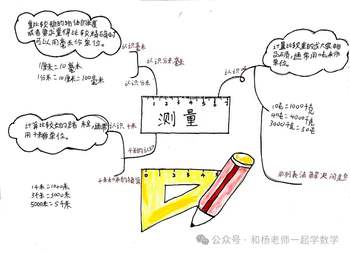 量比较短的物体的长度
或者要求量得比较精确时
可以用毫米作单位。
认识毫米
1厘米=10毫米
1分米=10厘米=100毫米
认识分米
测量
计算比较长的路程，通常
用千米作单位。
认识千米
1千米=1000米
3千米=3000米
5000米=5千米
认识吨
计量比较重的或大宗物
品的质量，通常用吨作
单位。
1吨=1000千克
4吨=4000千克
列表法解决问题
公众号·和杨老师一起学数学